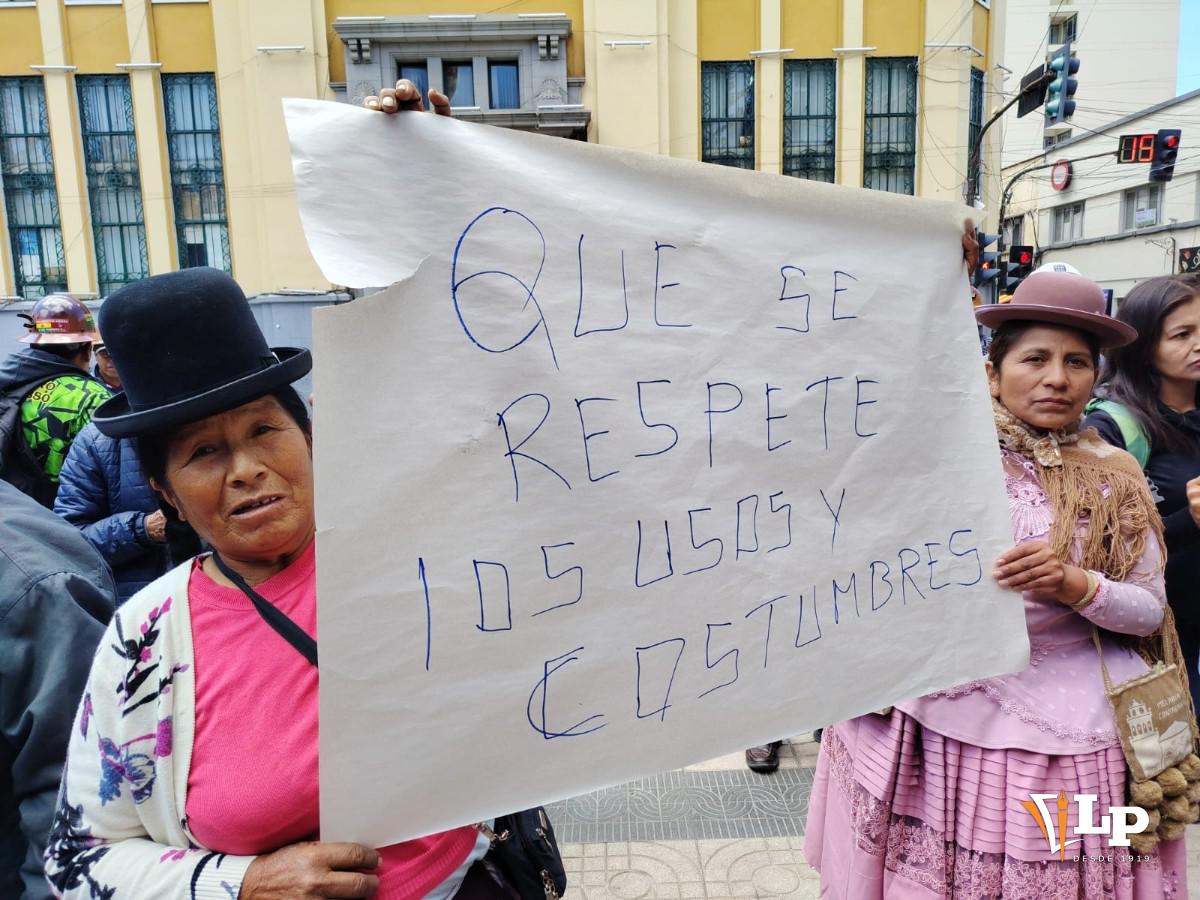 QUE SE
RESPETE
lOS USOS Y
COSTUMBRES
19
LP
DESDE 1919